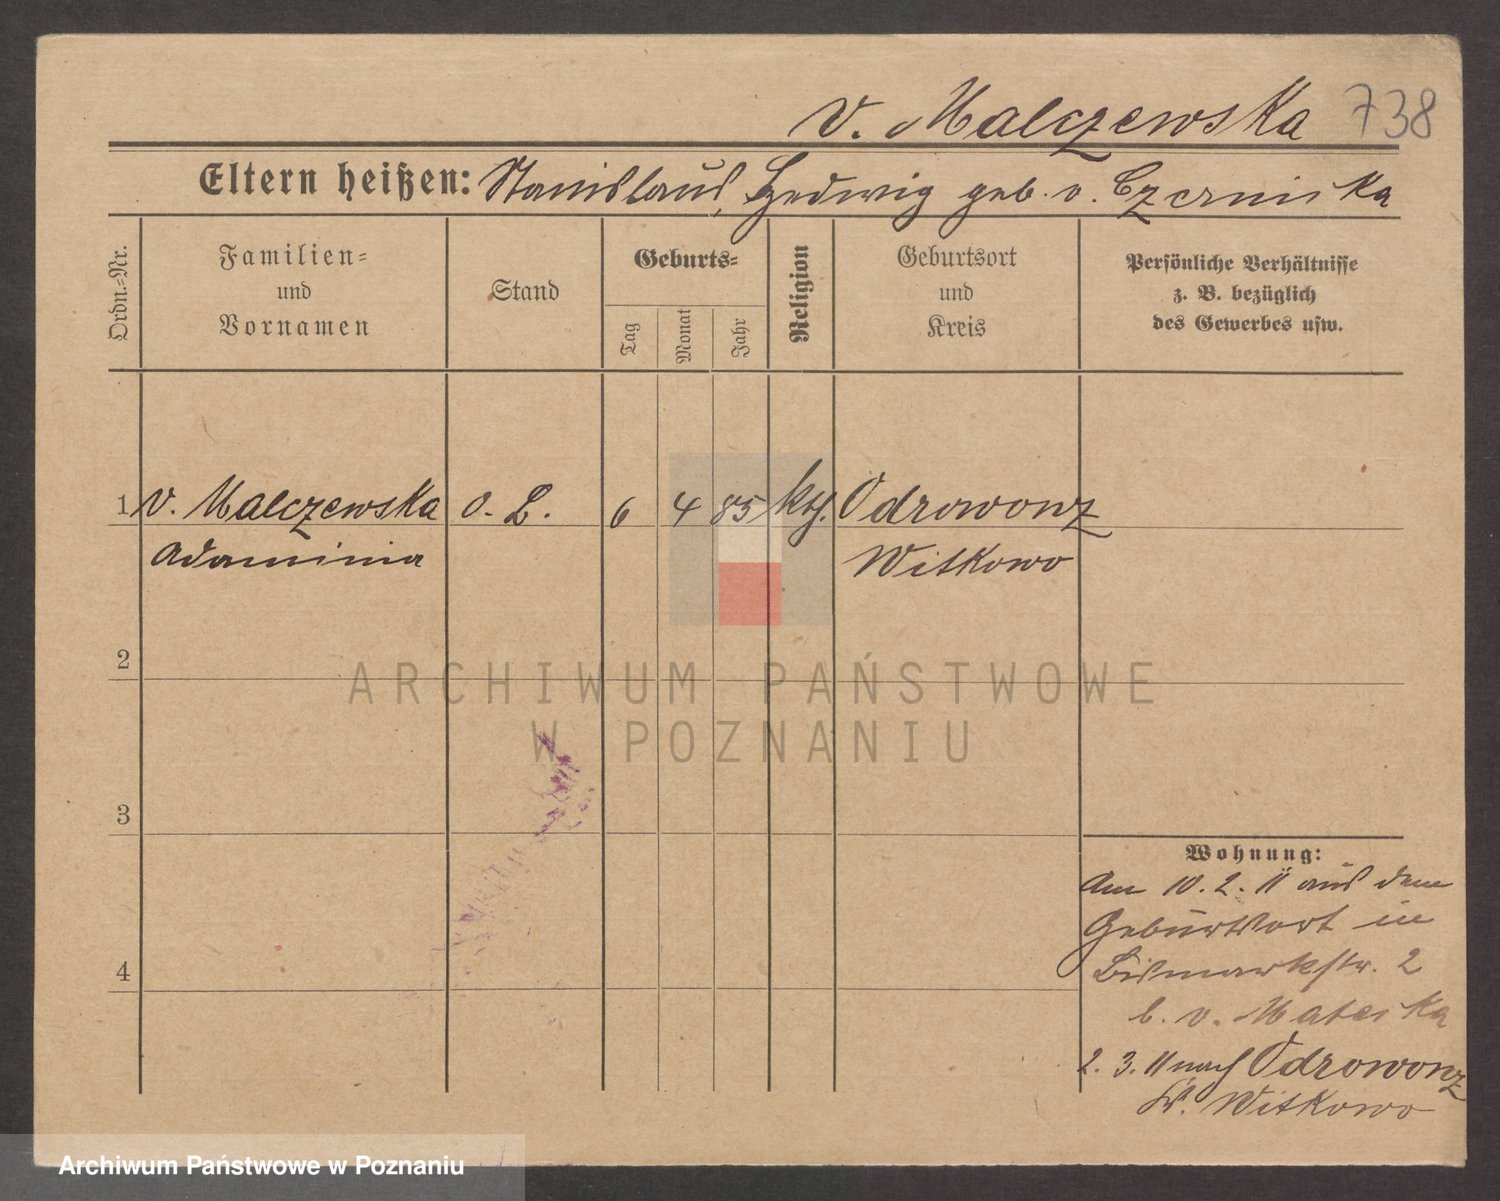 v. Malczewska 738
Eltern heißen: Stanislaus, Hedwig geb. v. Czerniska
Ordn.=Nr.
Familien=
und
Vornamen
Stand
Geburts=
Tag
Monat
Jahr
Religion
Geburtsort
und
Kreis
Persönliche Verhältnisse
z. B. bezüglich
des Gewerbes usw.
1 v. Malczewska o. B. 6 4 85 kth. Odrowonz
Adaminia Witkowo
2
3
4
Wohnung:
Am 10. 2. 11 aus dem
Geburtsort in
Bismarkstr. 2
b. v. Mateiska
2. 3. 11 nach Odrowonz
Kr. Witkowo
ARCHIWUM PAŃSTWOWE
W POZNANIU
Archiwum Państwowe w Poznaniu